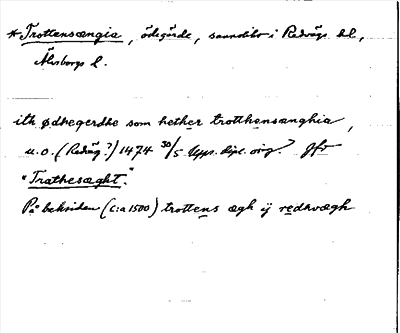 *Trottensængia, ödegärde, sannolikt i Redvägs hd,
Älvsborgs l.
ith ødhegerdhe som hether trotthansænghia,
u.o. (Redväg?) 1474 30/5 Upps. dipl. orig.? Jfr
"Trathesæght".
På baksidan (c:a 1500) trottens ægh ij redhvægh